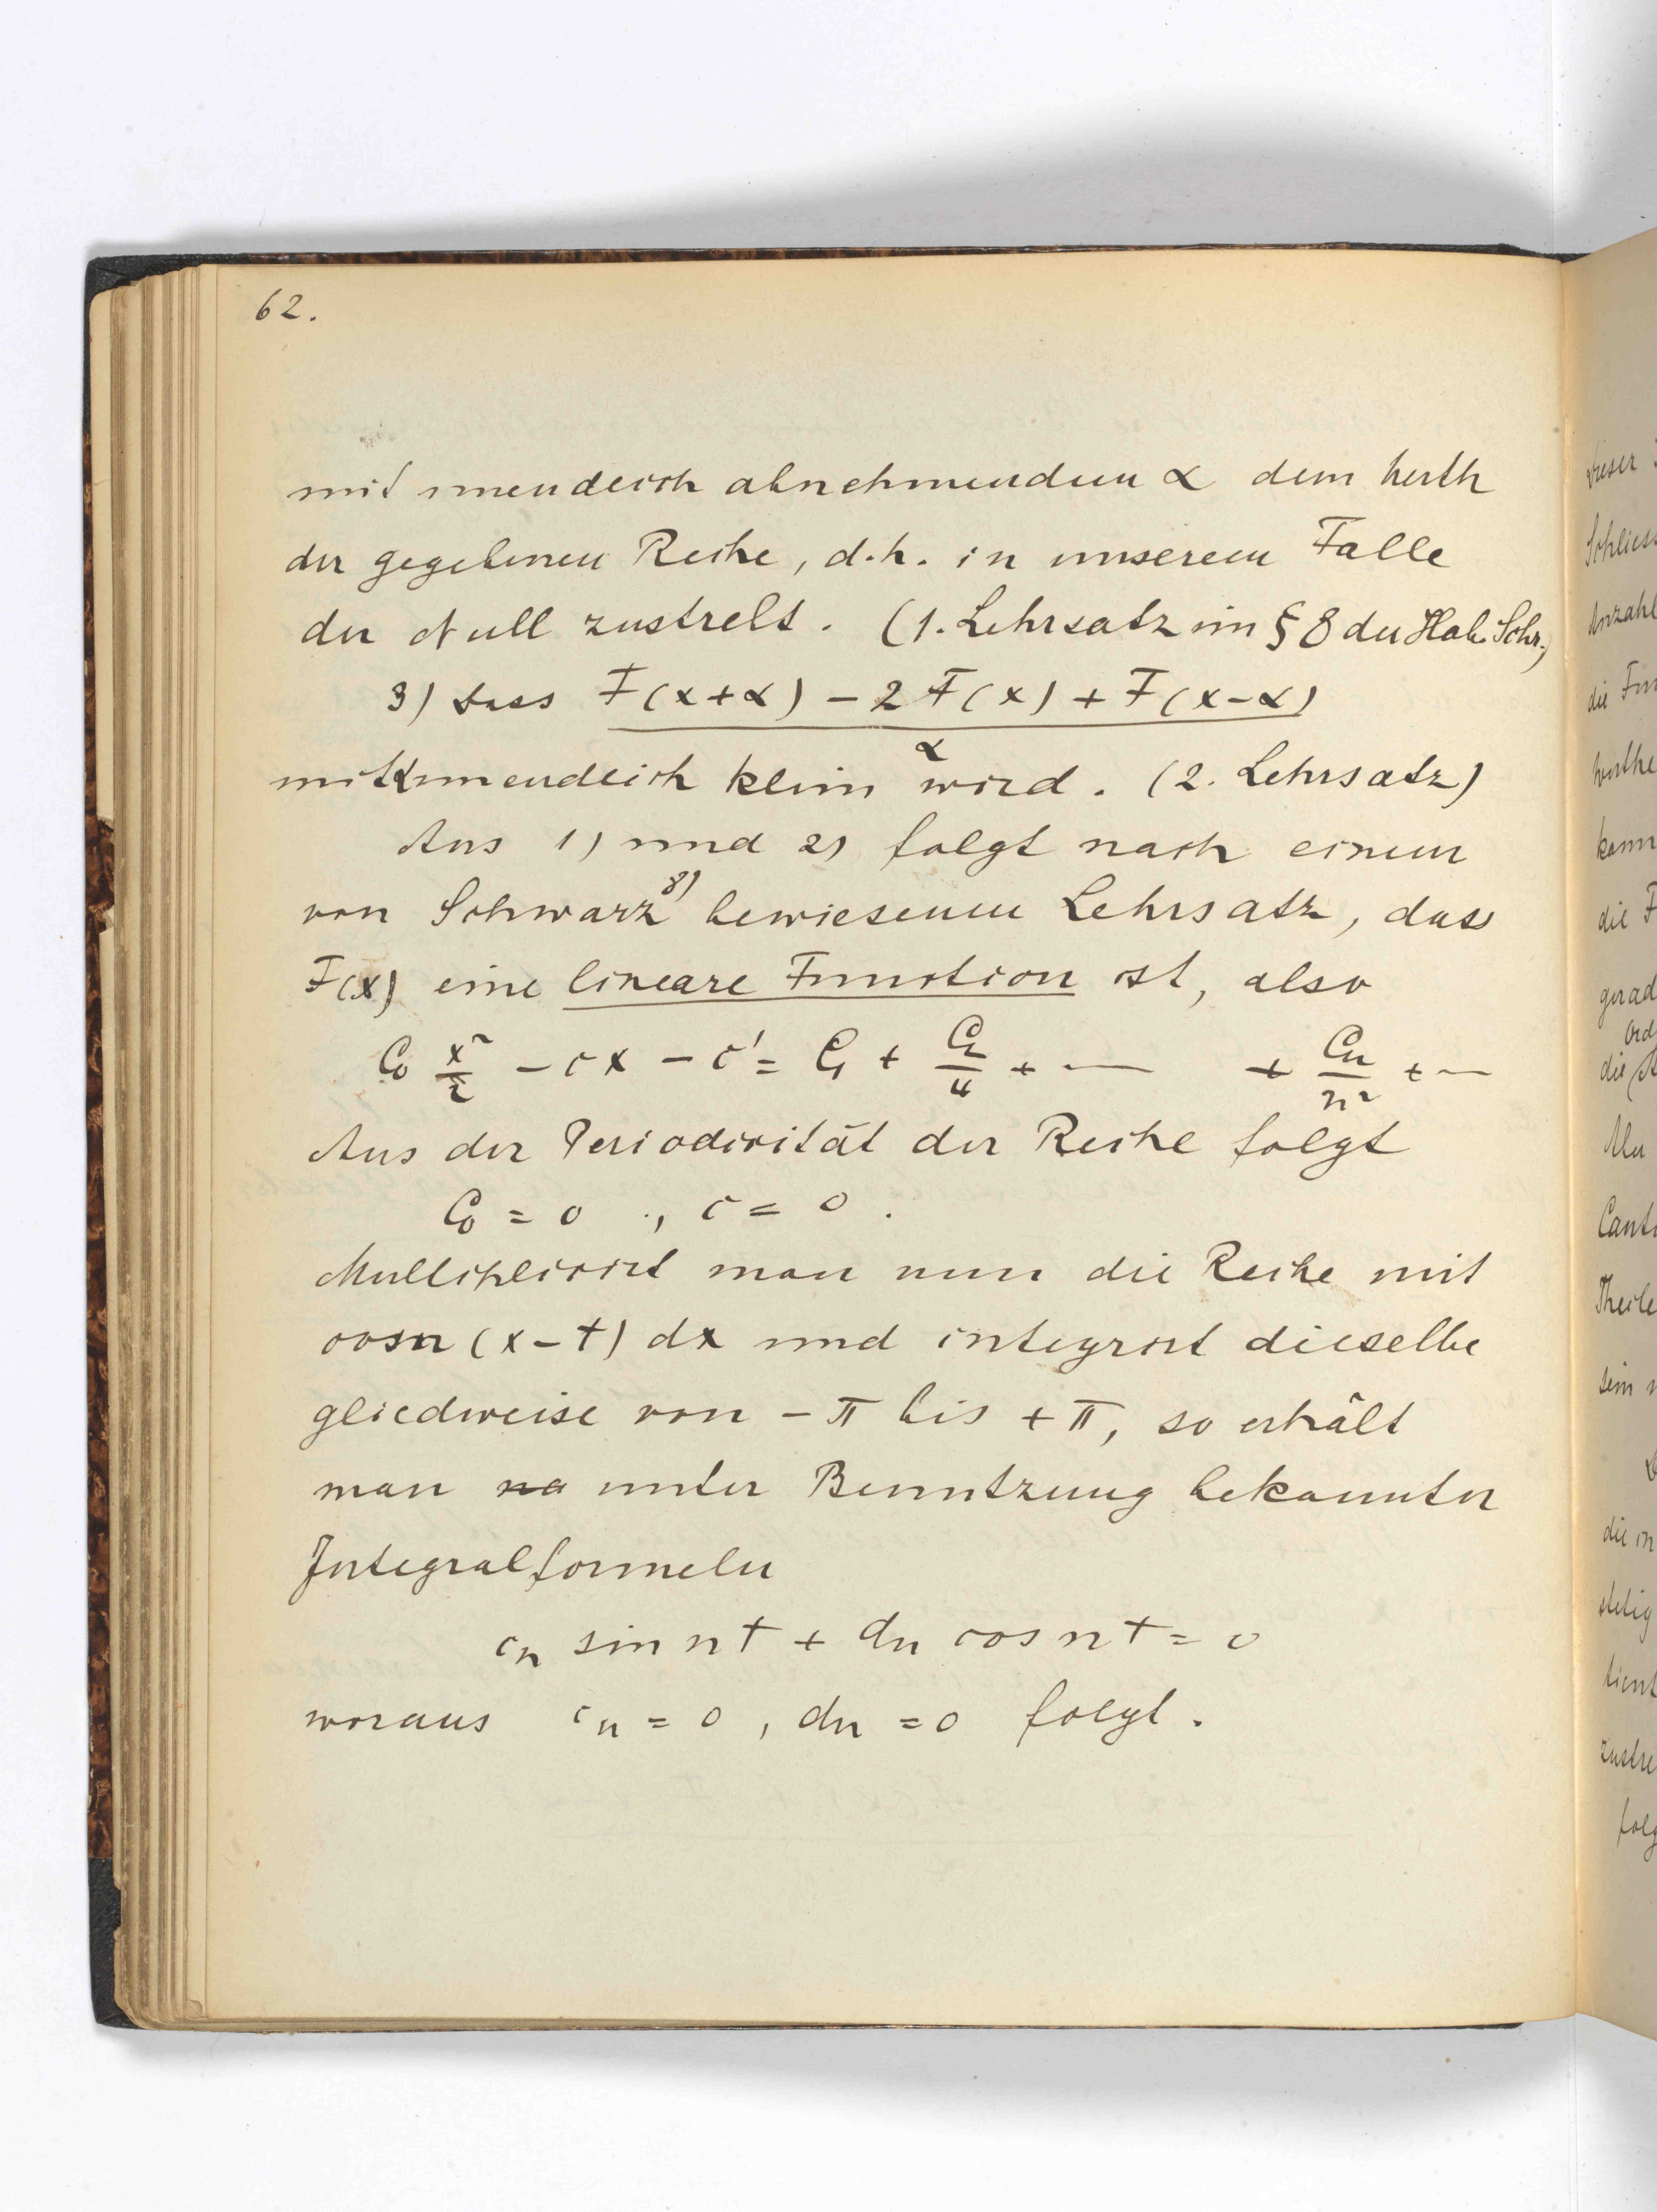 62.
mit unendlich abnehmendem α dem Werth
der gegebenen Reihe, d.h. in unserem Falle
der Null zustrebt. (1. Lehrsatz im § 8 der Hab. Schr.)
3) dass F(x+α) - 2F(x) + F(x-α)
α
mit α unendlich klein wird. (2. Lehrsatz)
Aus 1) und 2) folgt nach einem
von Schwarz 8) bewiesenen Lehrsatz, dass
F(x) eine lineare Function ist, also
C₀ x²/2 - cx - c' = C₁ + C₂/4 + — + Cn/n² + —
Aus der Periodicität der Reihe folgt
C₀ = 0 , c = 0 .
Multiplicirt man nun die Reihe mit
cosn (x-t) dx und integrirt dieselbe
gliedweise von -π bis +π, so erhält
man na unter Benutzung bekannter
Integralformeln
cn sin nt + dn cos nt = 0
woraus cn = 0 , dn = 0 folgt.
dieser
Schliess
Anzahl
die Fun
Werthe
kann
die F
gerad
Ord
die
Cant
Theile
sein
die in
stetig
tient
zustre
folg